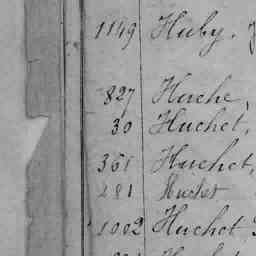 1149 Huby.
827 Huche,
30 Huchet,
361 Huchet,
281 Huchet
1002 Huchet